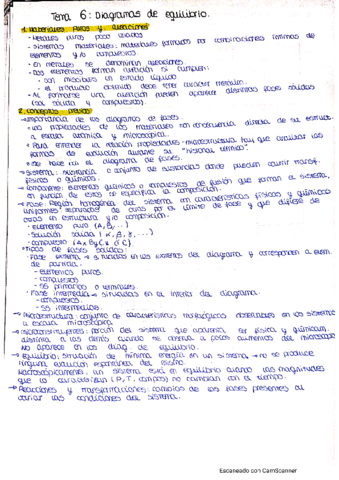 Tema 6: Diagramas de equilibrio.
1. Materiales puros y aleaciones
- Metales puros poco usados
- Sistemas materiales: materiales formados por combinaciones íntimas de
elementos y/o compuestos
- En metales se denominan aleaciones
- Dos elementos forman aleación si cumplen:
- son miscibles en estado líquido
- el producto obtenido debe tener carácter metálico.
- Al formarse una aleación pueden aparecer distintas fases sólidas
(sol. sólida y compuestos).
2. Conceptos previos
→ Importancia de los diagramas de fases.
- Las propiedades de los materiales son consecuencia directa de su estruct.
a escala atómica y microscópica.
- Para entender la relación propiedades-microestructura hay que analizar las
formas de evolución durante su "historial térmico".
- Se hace con el diagrama de fases.
→ Sistema: sustancia o conjunto de sustancias donde pueden ocurrir transf.
físicas o químicas.
→ Componente: elementos químicos o compuestos de fusión que forman el sistema,
en función de estos se especifica la composición.
→ Fase: Región homogénea del sistema con características físicas y químicas
uniformes separadas de otras por el límite de fase y que difiere de
otras en estructura y/o composición.
- elemento puro (A, B, ...)
- solución sólida (α, β, γ, ...)
- compuesto
→ Tipos de fases sólidas:
- Fase extrema → situadas en los extremos del diagrama y corresponden a elem.
de partida.
- elementos puros.
- compuestos
- SS primarias o terminales
- Fase intermedia → situadas en el interior del diagrama.
- compuestos
- SS intermedias
→ Microestructura: conjunto de características morfológicas observables en los sistemas
a escala microscópica
→ Microconstituyentes: porción del sistema que aparenta ser física y químicam.
distinta a las demás cuando se observa a pocos aumentos del microscopio
No aparece en los diag. de equilibrio.
→ Equilibrio: situación de mínima energía en un sistema → no se produce
ninguna evolución espontánea del mismo.
Macroscópicamente, un sistema está en equilibrio cuando las magnitudes
que lo caracterizan (P, T, compos) no cambian con el tiempo.
→ Reacciones y transformaciones: cambios de las fases presentes al
variar las condiciones del sistema.
Escaneado con CamScanner